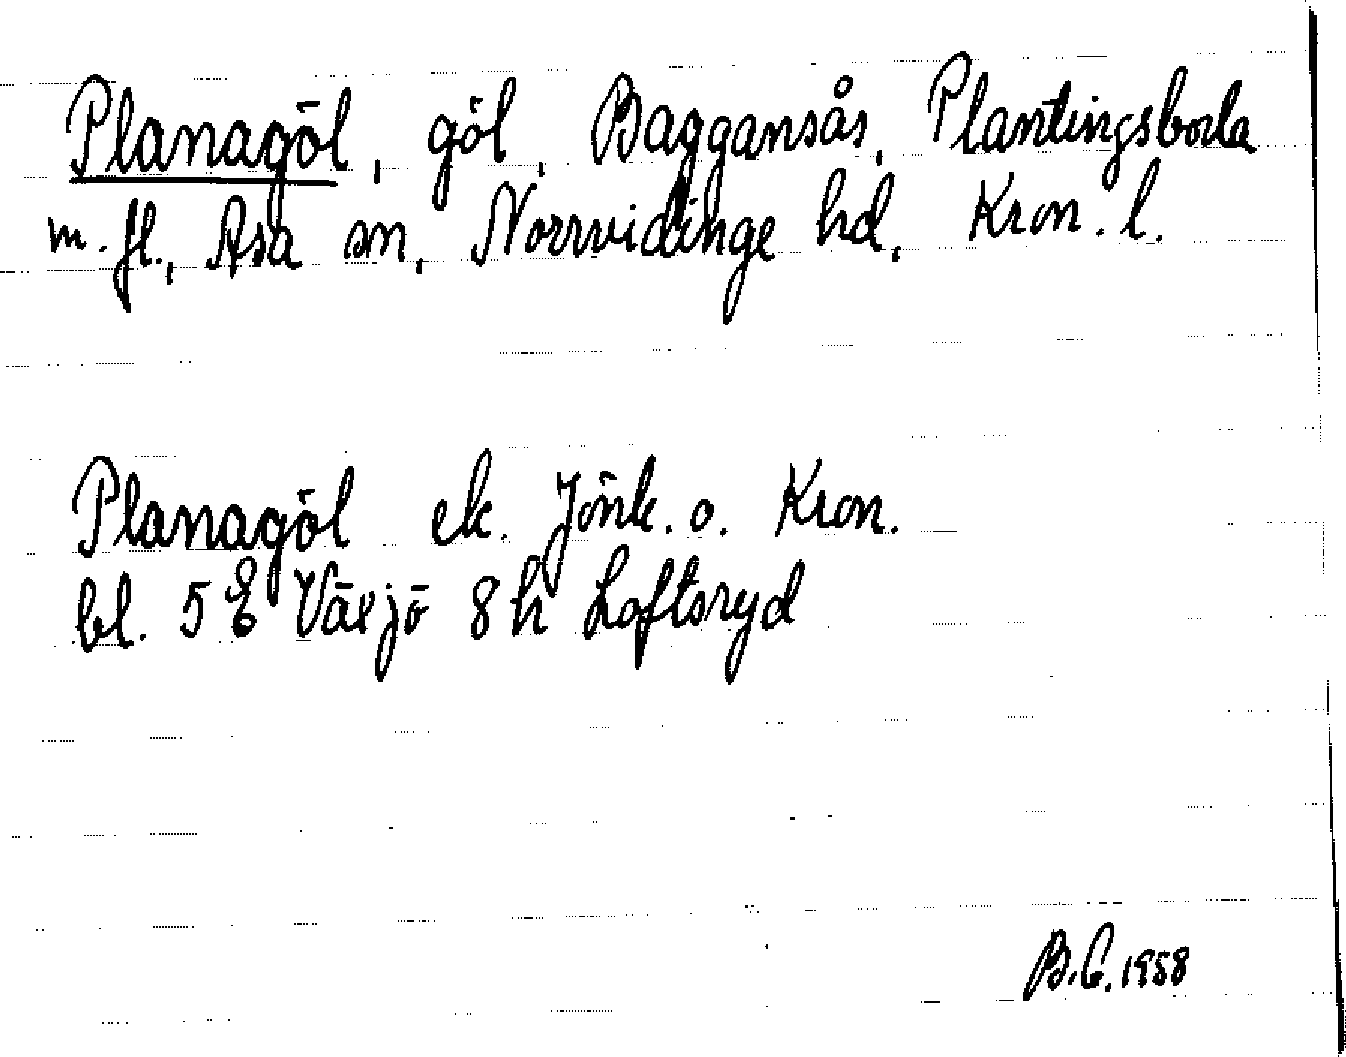 Planagöl, göl, Baggansås, Plantingsboda
m. fl., Asa sn, Norrvidinge hd, Kron. l.
Planagöl ek. Jönk. o. Kron.
bl. 5 E Växjö 8 h Loftsryd
B.C. 1958